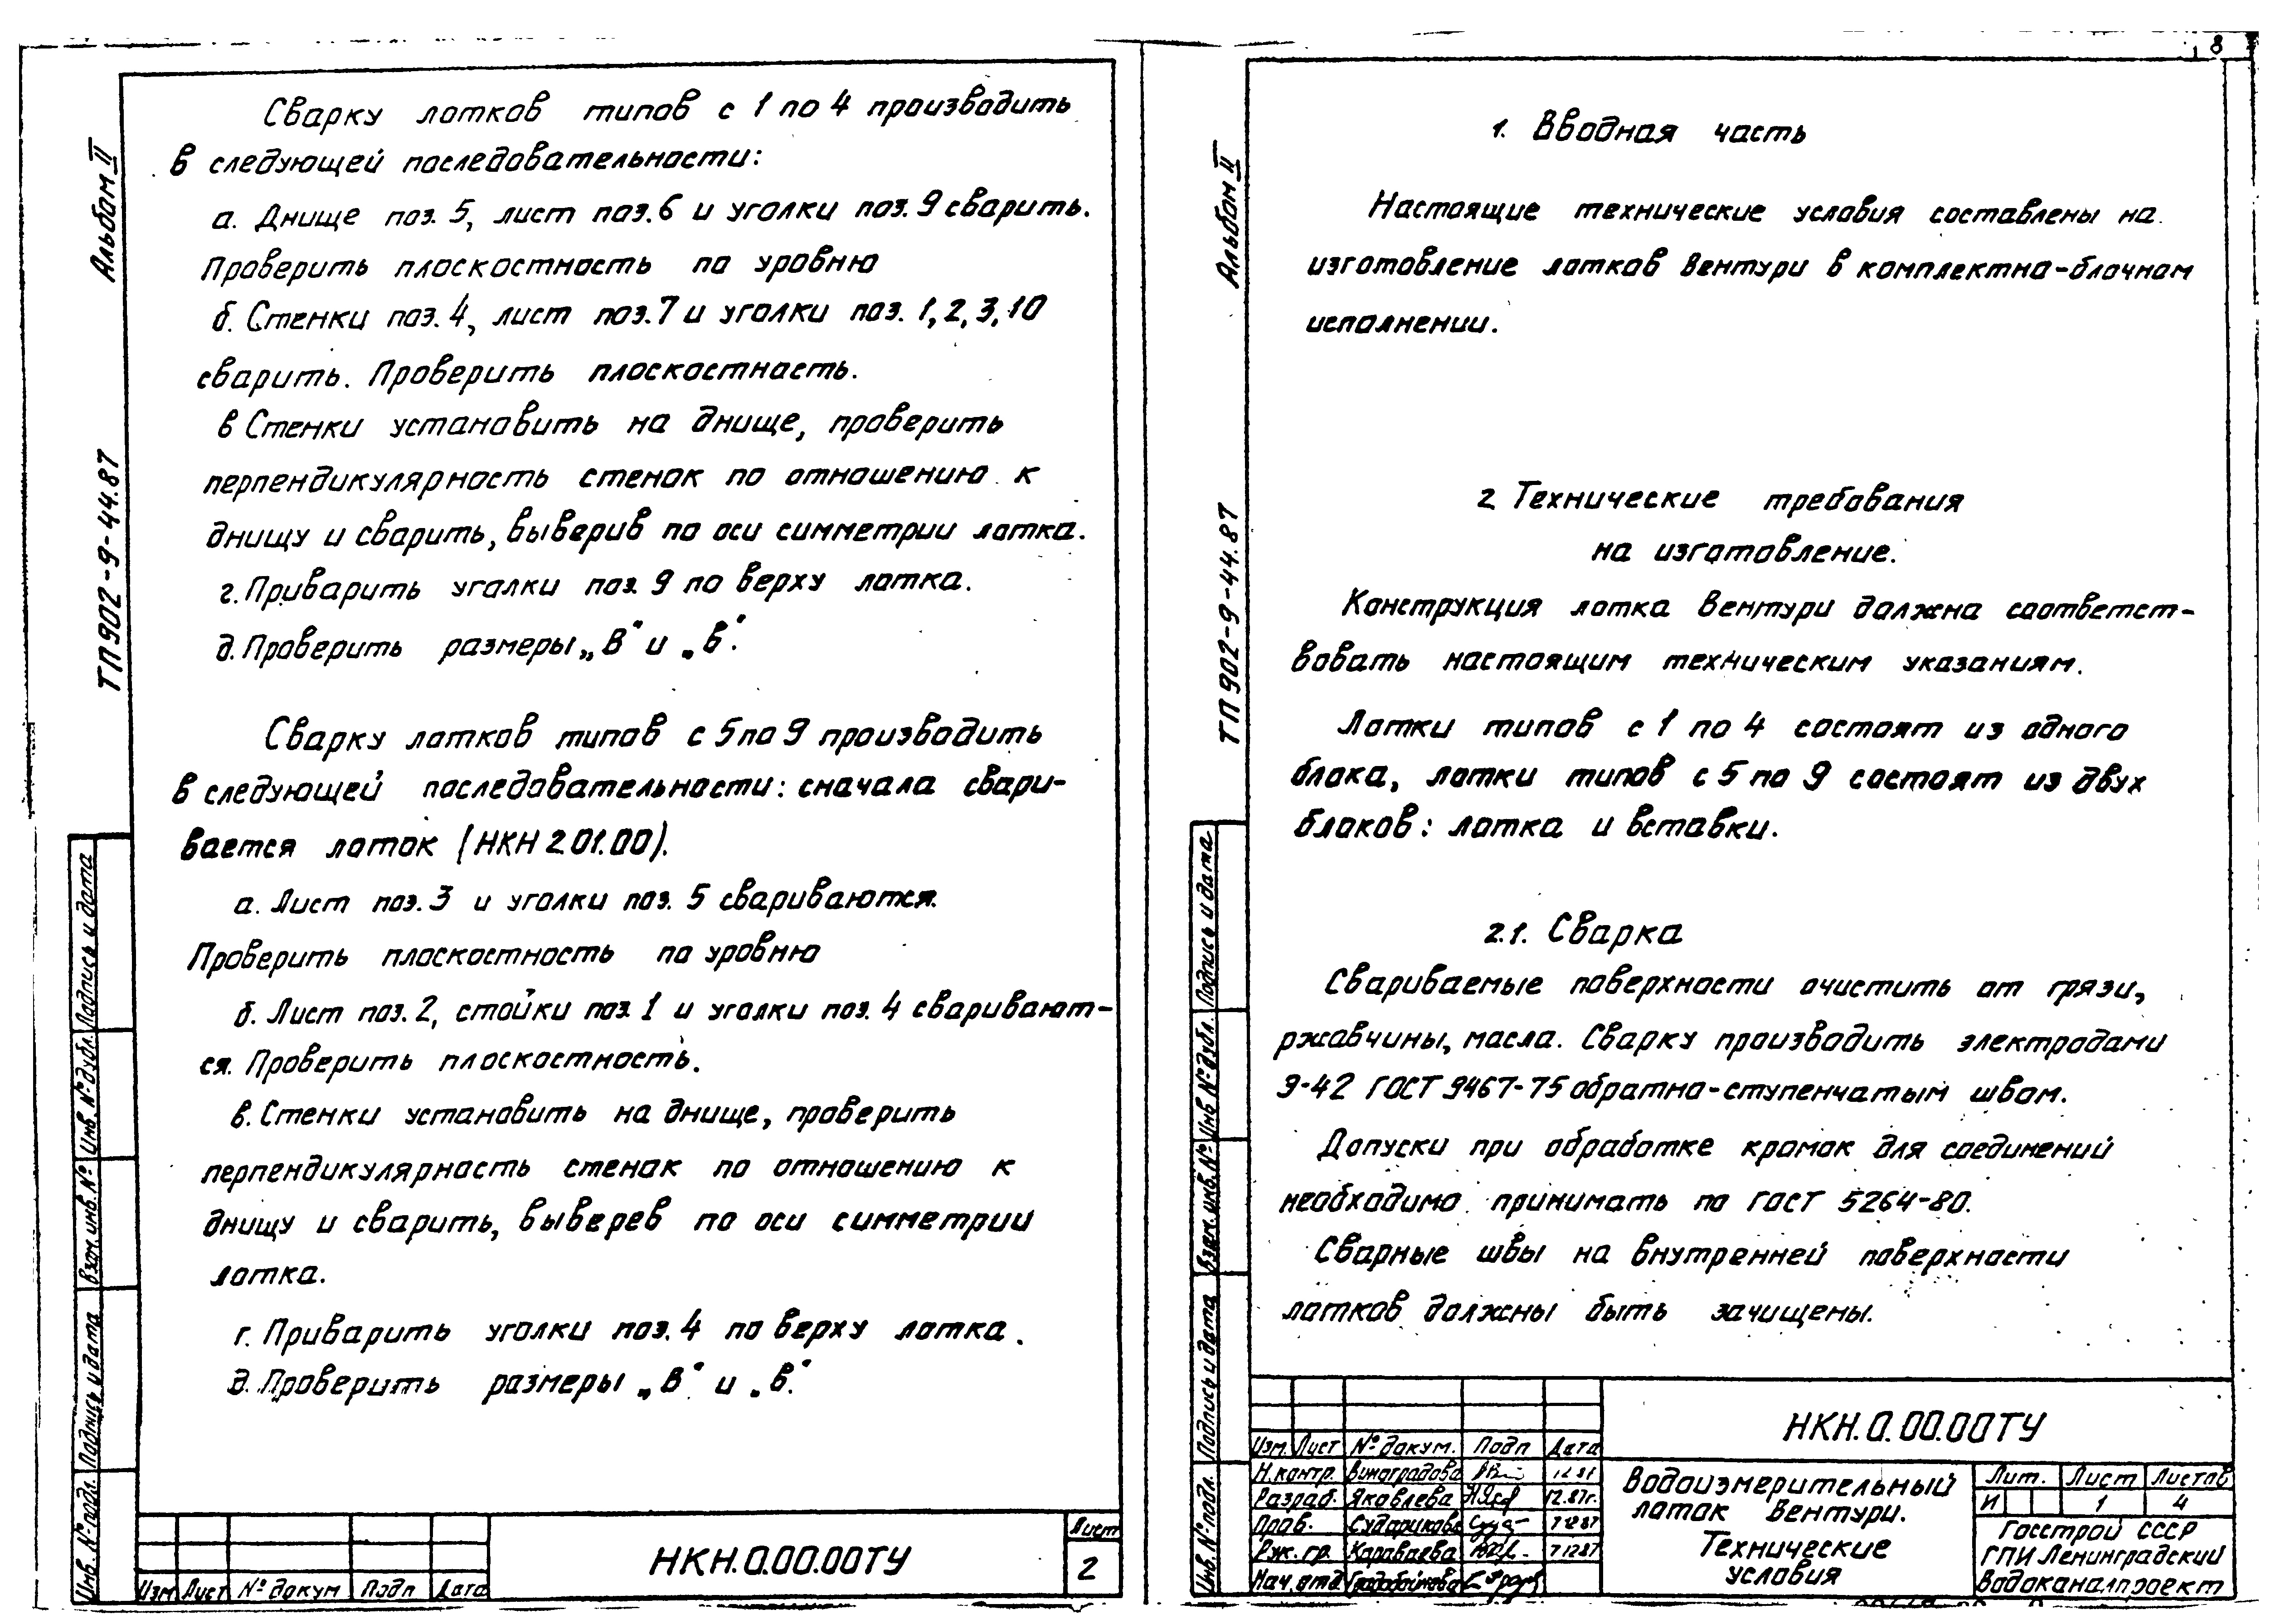 8
Альбом II
ТП902-9-44.87
Сварку лотков типов с 1 по 4 производить
в следующей последовательности:
а. Днище поз. 5, лист поз. 6 и уголки поз. 9 сварить.
Проверить плоскостность по уровню
б. Стенки поз. 4, лист поз. 7 и уголки поз. 1, 2, 3, 10
сварить. Проверить плоскостность.
в Стенки установить на днище, проверить
перпендикулярность стенок по отношению к
днищу и сварить, выверив по оси симметрии лотка.
г. Приварить уголки поз. 9 по верху лотка.
д. Проверить размеры „В" и „в".
Сварку лотков типов с 5 по 9 производить
в следующей последовательности: сначала свари-
вается лоток (НКН 2.01.00).
а. Лист поз. 3 и уголки поз. 5 свариваются.
Проверить плоскостность по уровню
б. Лист поз. 2, стойки поз. 1 и уголки поз. 4 сваривают-
ся. Проверить плоскостность.
в. Стенки установить на днище, проверить
перпендикулярность стенок по отношению к
днищу и сварить, выверев по оси симметрии
лотка.
г. Приварить уголки поз. 4 по верху лотка.
д. Проверить размеры „В" и „в".
Подпись и дата
Инв. № дубл.
Взам. инв. №
Подпись и дата
Инв. № подл.
Изм Лист № докум Подп Дата
НКН.0.00.00ТУ
Лист
2
Альбом II
ТП 902-9-44.87
1. Вводная часть
Настоящие технические условия составлены на
изготовление лотков Вентури в комплектно-блочном
исполнении.
2. Технические требования
на изготовление.
Конструкция лотка Вентури должна соответст-
вовать настоящим техническим указаниям.
Лотки типов с 1 по 4 состоят из одного
блока, лотки типов с 5 по 9 состоят из двух
блоков: лотка и вставки.
2.1. Сварка
Свариваемые поверхности очистить от грязи,
ржавчины, масла. Сварку производить электродами
Э-42 ГОСТ 9467-75 обратно-ступенчатым швом.
Допуски при обработке кромок для соединений
необходимо принимать по ГОСТ 5264-80.
Сварные швы на внутренней поверхности
лотков должны быть зачищены.
Подпись и дата
Инв № дубл.
Взам. инв. №
Подпись и дата
Инв. № подл.
Изм. Лист № докум. Подп Дата
Н.контр. Виноградова
Разраб. Яковлева 12.87г.
Пров. Сударикова 12.87
Рук. гр. Караваева 12.87
Нач. отд.
НКН.0.00.00ТУ
Водоизмерительный
лоток Вентури.
Технические
условия
Лит. Лист Листов
И 1 4
Госстрой СССР
ГПИ Ленинградский
Водоканалпроект